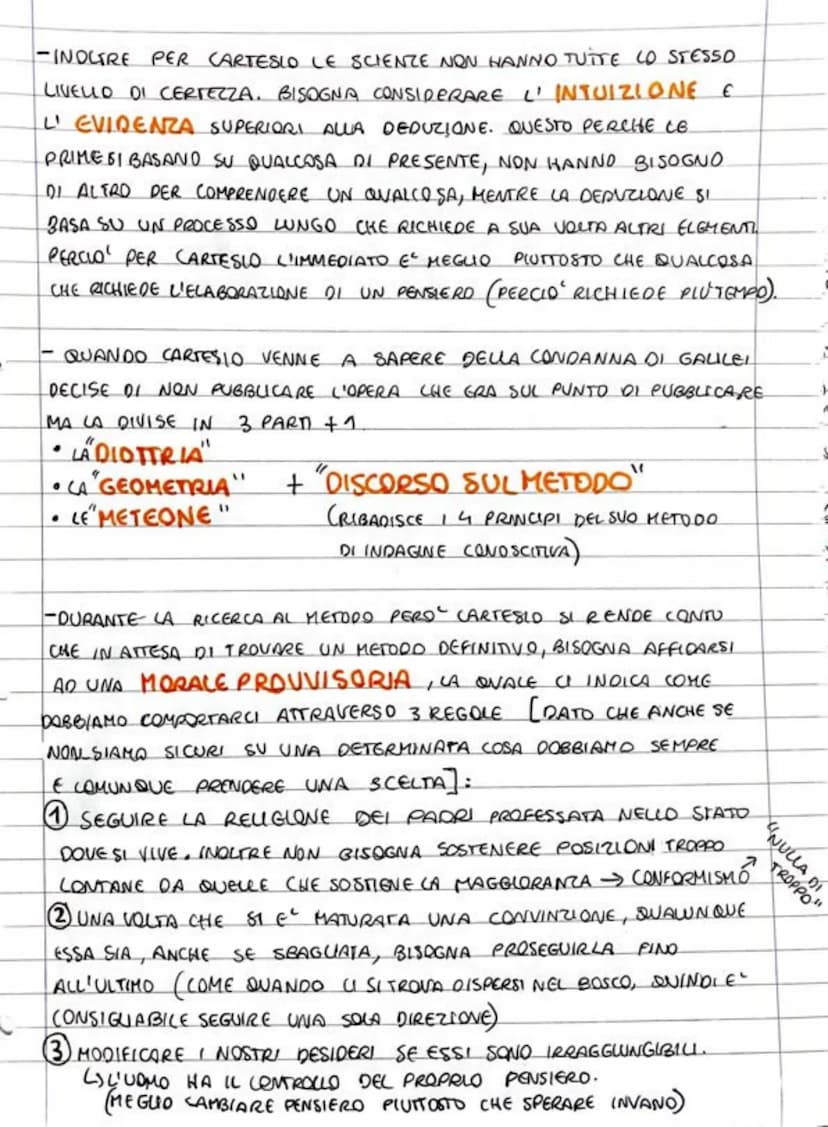 - INOLTRE PER CARTESIO LE SCIENZE NON HANNO TUTTE LO STESSO
LIVELLO DI CERTEZZA. BISOGNA CONSIDERARE L' INTUIZIONE E
L' EVIDENZA SUPERIORI ALLA DEDUZIONE. QUESTO PERCHE LE
PRIME SI BASANO SU QUALCOSA DI PRESENTE, NON HANNO BISOGNO
DI ALTRO PER COMPRENDERE UN QUALCOSA, MENTRE LA DEDUZIONE SI
BASA SU UN PROCESSO LUNGO CHE RICHIEDE A SUA VOLTA ALTRI ELEMENTI.
PERCIO' PER CARTESIO L'IMMEDIATO E' MEGLIO PIUTTOSTO CHE QUALCOSA
CHE RICHIEDE L'ELABORAZIONE DI UN PENSIERO (PERCIO' RICHIEDE PIU' TEMPO).
- QUANDO CARTESIO VENNE A SAPERE DELLA CONDANNA DI GALILEI
DECISE DI NON PUBBLICARE L'OPERA CHE ERA SUL PUNTO DI PUBBLICARE
MA LA DIVISE IN 3 PARTI + 1
• LA "DIOTTRIA"
• LA "GEOMETRIA" + "DISCORSO SUL METODO"
• LE "METEONE" (RIBADISCE I 4 PRINCIPI DEL SUO METODO
DI INDAGINE CONOSCITIVA)
- DURANTE LA RICERCA AL METODO PERO' CARTESIO SI RENDE CONTO
CHE IN ATTESA DI TROVARE UN METODO DEFINITIVO, BISOGNA AFFIDARSI
AD UNA MORALE PROVVISORIA, LA QUALE CI INDICA COME
DOBBIAMO COMPORTARCI ATTRAVERSO 3 REGOLE [DATO CHE ANCHE SE
NON SIAMO SICURI SU UNA DETERMINATA COSA DOBBIAMO SEMPRE
E COMUNQUE PRENDERE UNA SCELTA]:
① SEGUIRE LA RELIGIONE DEI PADRI PROFESSATA NELLO STATO
DOVE SI VIVE. INOLTRE NON BISOGNA SOSTENERE POSIZIONI TROPPO
LONTANE DA QUELLE CHE SOSTIENE LA MAGGIORANZA → CONFORMISMO ↗
"NULLA DI
TROPPO"
② UNA VOLTA CHE SI E' MATURATA UNA CONVINZIONE, QUALUNQUE
ESSA SIA, ANCHE SE SBAGLIATA, BISOGNA PROSEGUIRLA FINO
ALL'ULTIMO (COME QUANDO CI SI TROVA DISPERSI NEL BOSCO, QUINDI E'
CONSIGLIABILE SEGUIRE UNA SOLA DIREZIONE)
③ MODIFICARE I NOSTRI DESIDERI SE ESSI SONO IRRAGGIUNGIBILI.
↳ L'UOMO HA IL CONTROLLO DEL PROPRIO PENSIERO.
(MEGLIO CAMBIARE PENSIERO PIUTTOSTO CHE SPERARE INVANO)